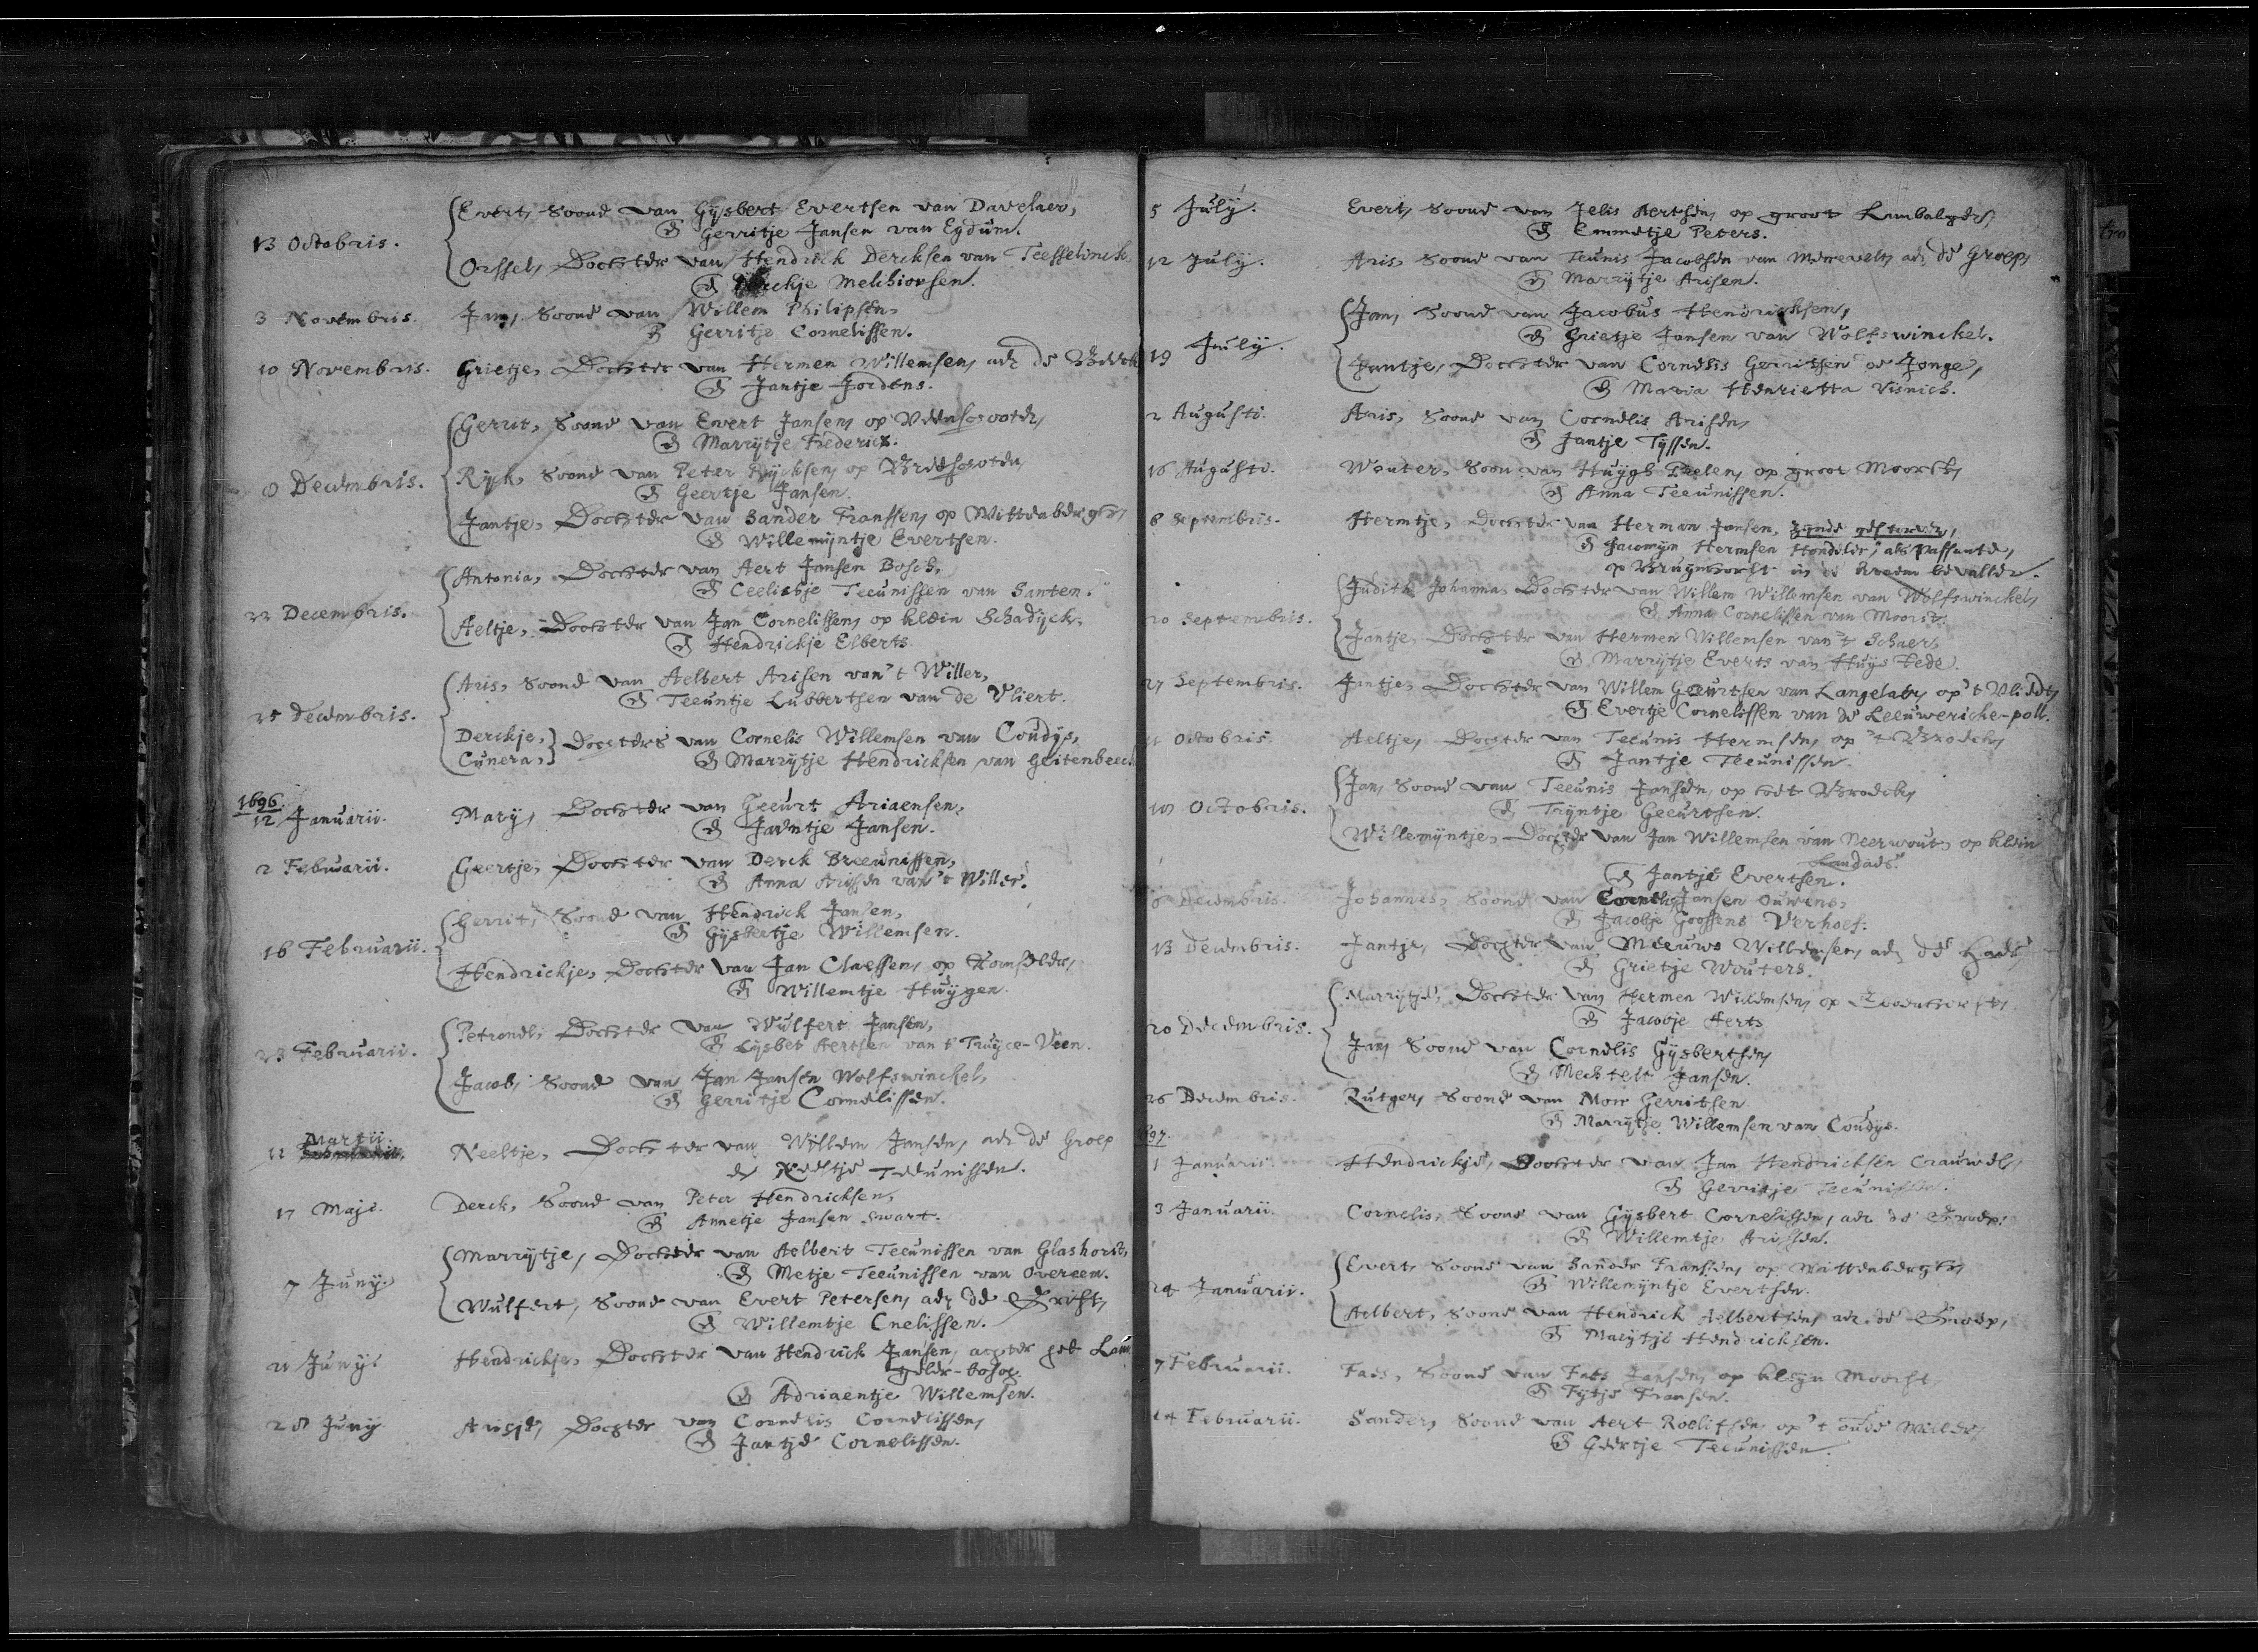 Evert, Soone van Gijsbert Evertsen van Davelaer,
13 Octobris.
& Gerritje Jansen van Egdum.
Orssel, Dochter van Hendrick Dercksen van Teesselinck
& Melchiorsen.
3 Novembris. Jan, Soone van Willem Philipsen,
& Gerritje Cornelissen.
10 Novembris. Grietje, Dochter van Hermen Willemsen, aen de
& Jantje Jordens.
Gerrit, Soone van Evert Jansen, op Veenschooten,
& Marrijtje Fredericx.
8 Decembris. Rijk, Soone van Peter Rijcksen, op
& Geertje Jansen.
Jantje, Dochter van Sander Franssen, op Wittenbergh,
& Willemijntje Evertsen.
Antonia, Dochter van Aert Jansen Bosch,
& Ceelisbje Teeunissen van Santen.
22 Decembris.
Aeltje, Dochter van Jan Cornelissen, op klein Schadijck,
& Hendrickje Elberts.
Aris, Soone van Aelbert Arisen van 't Willer,
& Teeuntje Lubbertsen van de Vliert.
25 Decembris.
Derckje,
Cunera, Dochters van Cornelis Willemsen van Coudijs,
& Marrijtje Hendricksen van Geitenbeeck
1696.
12 Januarii. Marij, Dochter van Geeurt Ariaensen,
& Jantje Jansen.
2 Februarii. Geertje, Dochter van Derck Breeunissen,
& Anna Arissen van 't Willer.
Gerrit, Soone van Hendrick Jansen,
& Gijsbertje Willemsen.
16 Februarii.
Hendrickje, Dochter van Jan Claessen, op
& Willemtje Huijgen.
Petronel, Dochter van Wulfert Jansen,
& Lijsbet Aertsen van 't Truijce-Veen.
23 Februarii.
Jacob, Soone van Jan Jansen Wolfswinckel,
& Gerritje Cornelissen.
Martii.
11 Neeltje, Dochter van Willem Jansen, aen de Groep
& Neeltje Teeunissen.
17 Maji. Derck, Soone van Peter Hendricksen,
& Annetje Jansen Swart.
Marrijtje, Dochter van Aelbert Teeunissen van Glashorst,
& Metje Teeunissen van Overeem.
7 Junij.
Wulfert, Soone van Evert Petersen, aen de Grift,
& Willemtje Cnelissen.
21 Junij. Hendrickje, Dochter van Hendrick Jansen, achter het Lam
geler-bosch.
& Adriaentje Willemsen.
28 Junij Arisje, Dochter van Cornelis Cornelissen,
& Jantje Cornelissen.
5 Julij. Evert, Soone van Jelis Aertsen, op groot Lambalgen,
& Emmetje Peters.
12 Julij. Aris, Soone van Teunis Jacobsen van Merevelt, aen de Groep,
& Marrijtje Arisen.
Jan, Soone van Jacobus Hendricksen,
& Grietje Jansen van Wolfswinckel.
19 Julij.
Jantje, Dochter van Cornelis Gerritsen de Jonge,
& Maria Henrietta Visnich.
2 Augusti. Aris, Soone van Cornelis Arisen,
& Jantje Tijssen.
16 Augusti. Wouter, Soon van Huijgh Peelen, op groot Moorst,
& Anna Teeunissen.
6 Septembris. Hermtje, Dochter van Herman Jansen, zijnde gestorven,
& Jacomijn Hermsen Hondeler, als Passante,
op Bruijnhorst in de kraem bevallen.
Judith Johanna, Dochter van Willem Willemsen van Wolfswinckel,
& Anna Cornelissen van Moorst.
20 Septembris.
Jantje, Dochter van Hermen Willemsen van 't Schaer,
& Marrijtje Everts van Huijstede.
27 Septembris. Jintje, Dochter van Willem Geeurtsen van Langelaer, op 't Vliedt,
& Evertje Cornelissen van de Leeuwericke-poll.
11 Octobris. Aeltje, Dochter van Teeunis Hermsen, op 't Broeck,
& Jantje Teeunissen.
Jan, Soone van Teeunis Jansen, op het Broeck,
& Trijntje Geeurtsen.
18 Octobris.
Willemijntje, Dochter van Jan Willemsen van Neerwout, op klein
Landaes.
& Jantje Evertsen.
6 Decembris. Johannes, Soone van Cornelis Jansen Ouwens,
& Jacobje Goossens Verhoef.
13 Decembris. Jantje, Dochter van Meeuws Willemsen, aen de Haer,
& Grietje Wouters.
Marrijtje, Dochter van Hermen Willemsen, op
& Jacobje Aerts
20 Decembris.
Jan, Soone van Cornelis Gijsbertsen,
& Mechtelt Jansen.
26 Decembris. Rutger, Soone van Mor Gerritsen
& Marrijtje Willemsen van Coudijs.
1697.
1 Januarii. Hendrickje, Dochter van Jan Hendricksen Crauwel,
& Gerritje Teeunissen.
3 Januarii. Cornelis, Soone van Gijsbert Cornelissen, aen de Groep,
& Willemtje Arissen.
Evert, Soone van Sander Franssen, op Wittenbergh,
& Willemijntje Evertsen.
24 Januarii.
Aelbert, Soone van Hendrick Aelbertsen, aen de Groep,
& Marijtje Hendricksen.
7 Februarii. Faes, Soone van Faes Jansen, op kleijn Moorst,
& Fijtje Fransen.
14 Februarii. Sander, Soone van Aert Roelifsen, op 't oude Willer,
& Geertje Teeunissen.